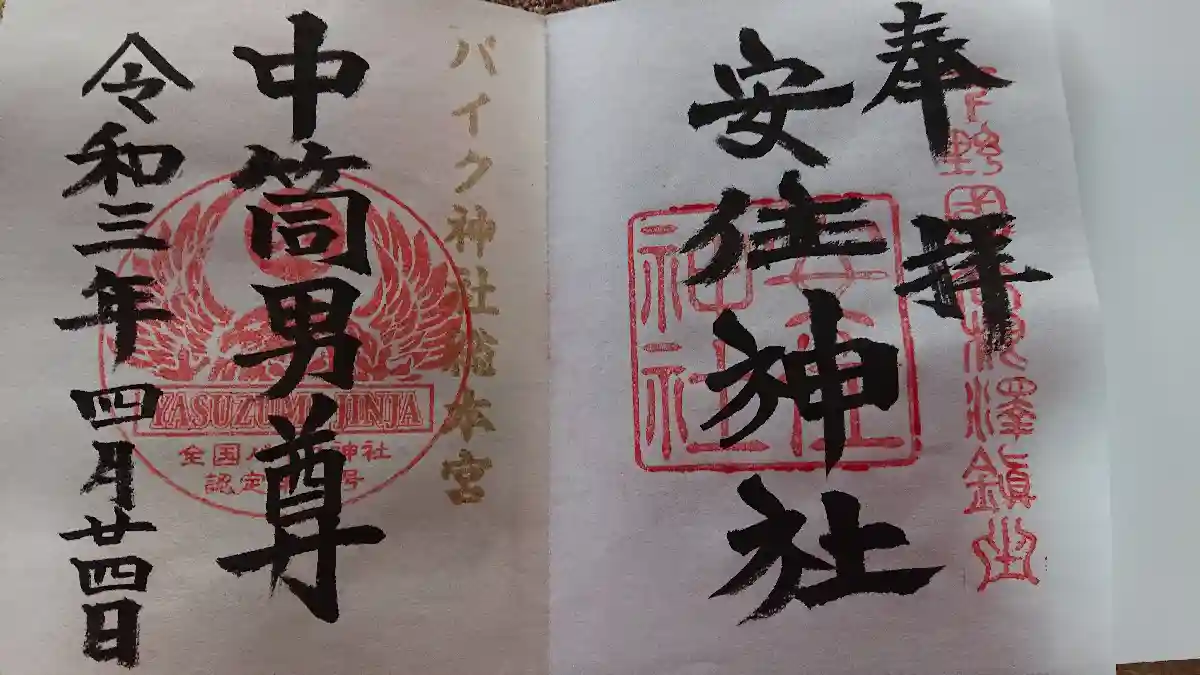 奉拝
安住神社
神社
鎮出
バイク神社総本宮
中筒男尊
YASUZUMI JINJA
全国バイク神社
認定第一号
令和三年四月廿四日